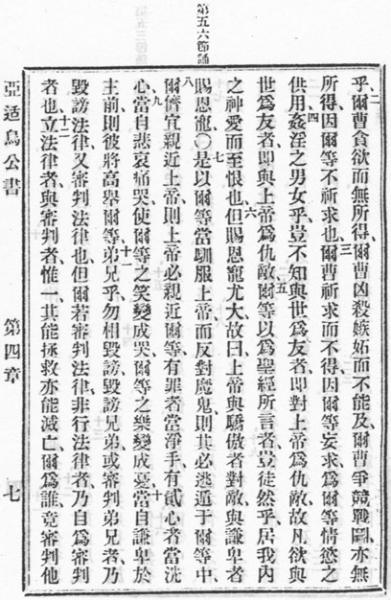 第五六節論
二乎、爾曹貪欲而無所得、爾曹凶殺嫉妬而不能及、爾曹爭競戰鬬、亦無
所得、因爾等不祈求也、三爾曹祈求而不得、因爾等妄求、爲爾等情慾之
供用、四姦淫之男女乎、豈不知與世爲友者、即對上帝爲仇敵、故凡欲與
世爲友者、即與上帝爲仇敵、五爾等以爲聖經所言者、豈徒然乎、居我內
之神愛而至恨也、六但賜恩寵尤大、故曰、上帝與驕傲者對敵、與謙卑者
賜恩寵、〇七是以爾等當馴服上帝、而反對魔鬼、則其必逃遁于爾等中、
八爾儕宜親近上帝、則上帝必親近爾等、有罪者當淨手、有貳心者當洗
心、九當自悲哀痛哭、使爾等之笑變成哭、爾等之樂變成憂、十當自謙卑於
主前、則彼將高舉爾等、十一弟兄乎、勿相毀謗、毀謗兄弟、或審判弟兄者、乃
毀謗法律、又審判法律也、但爾若審判法律、非行法律者、乃自爲審判
者也、十二立法律者、與審判者惟一、其能拯救、亦能滅亡、爾爲誰、竟審判他
亞适烏公書 第四章 七